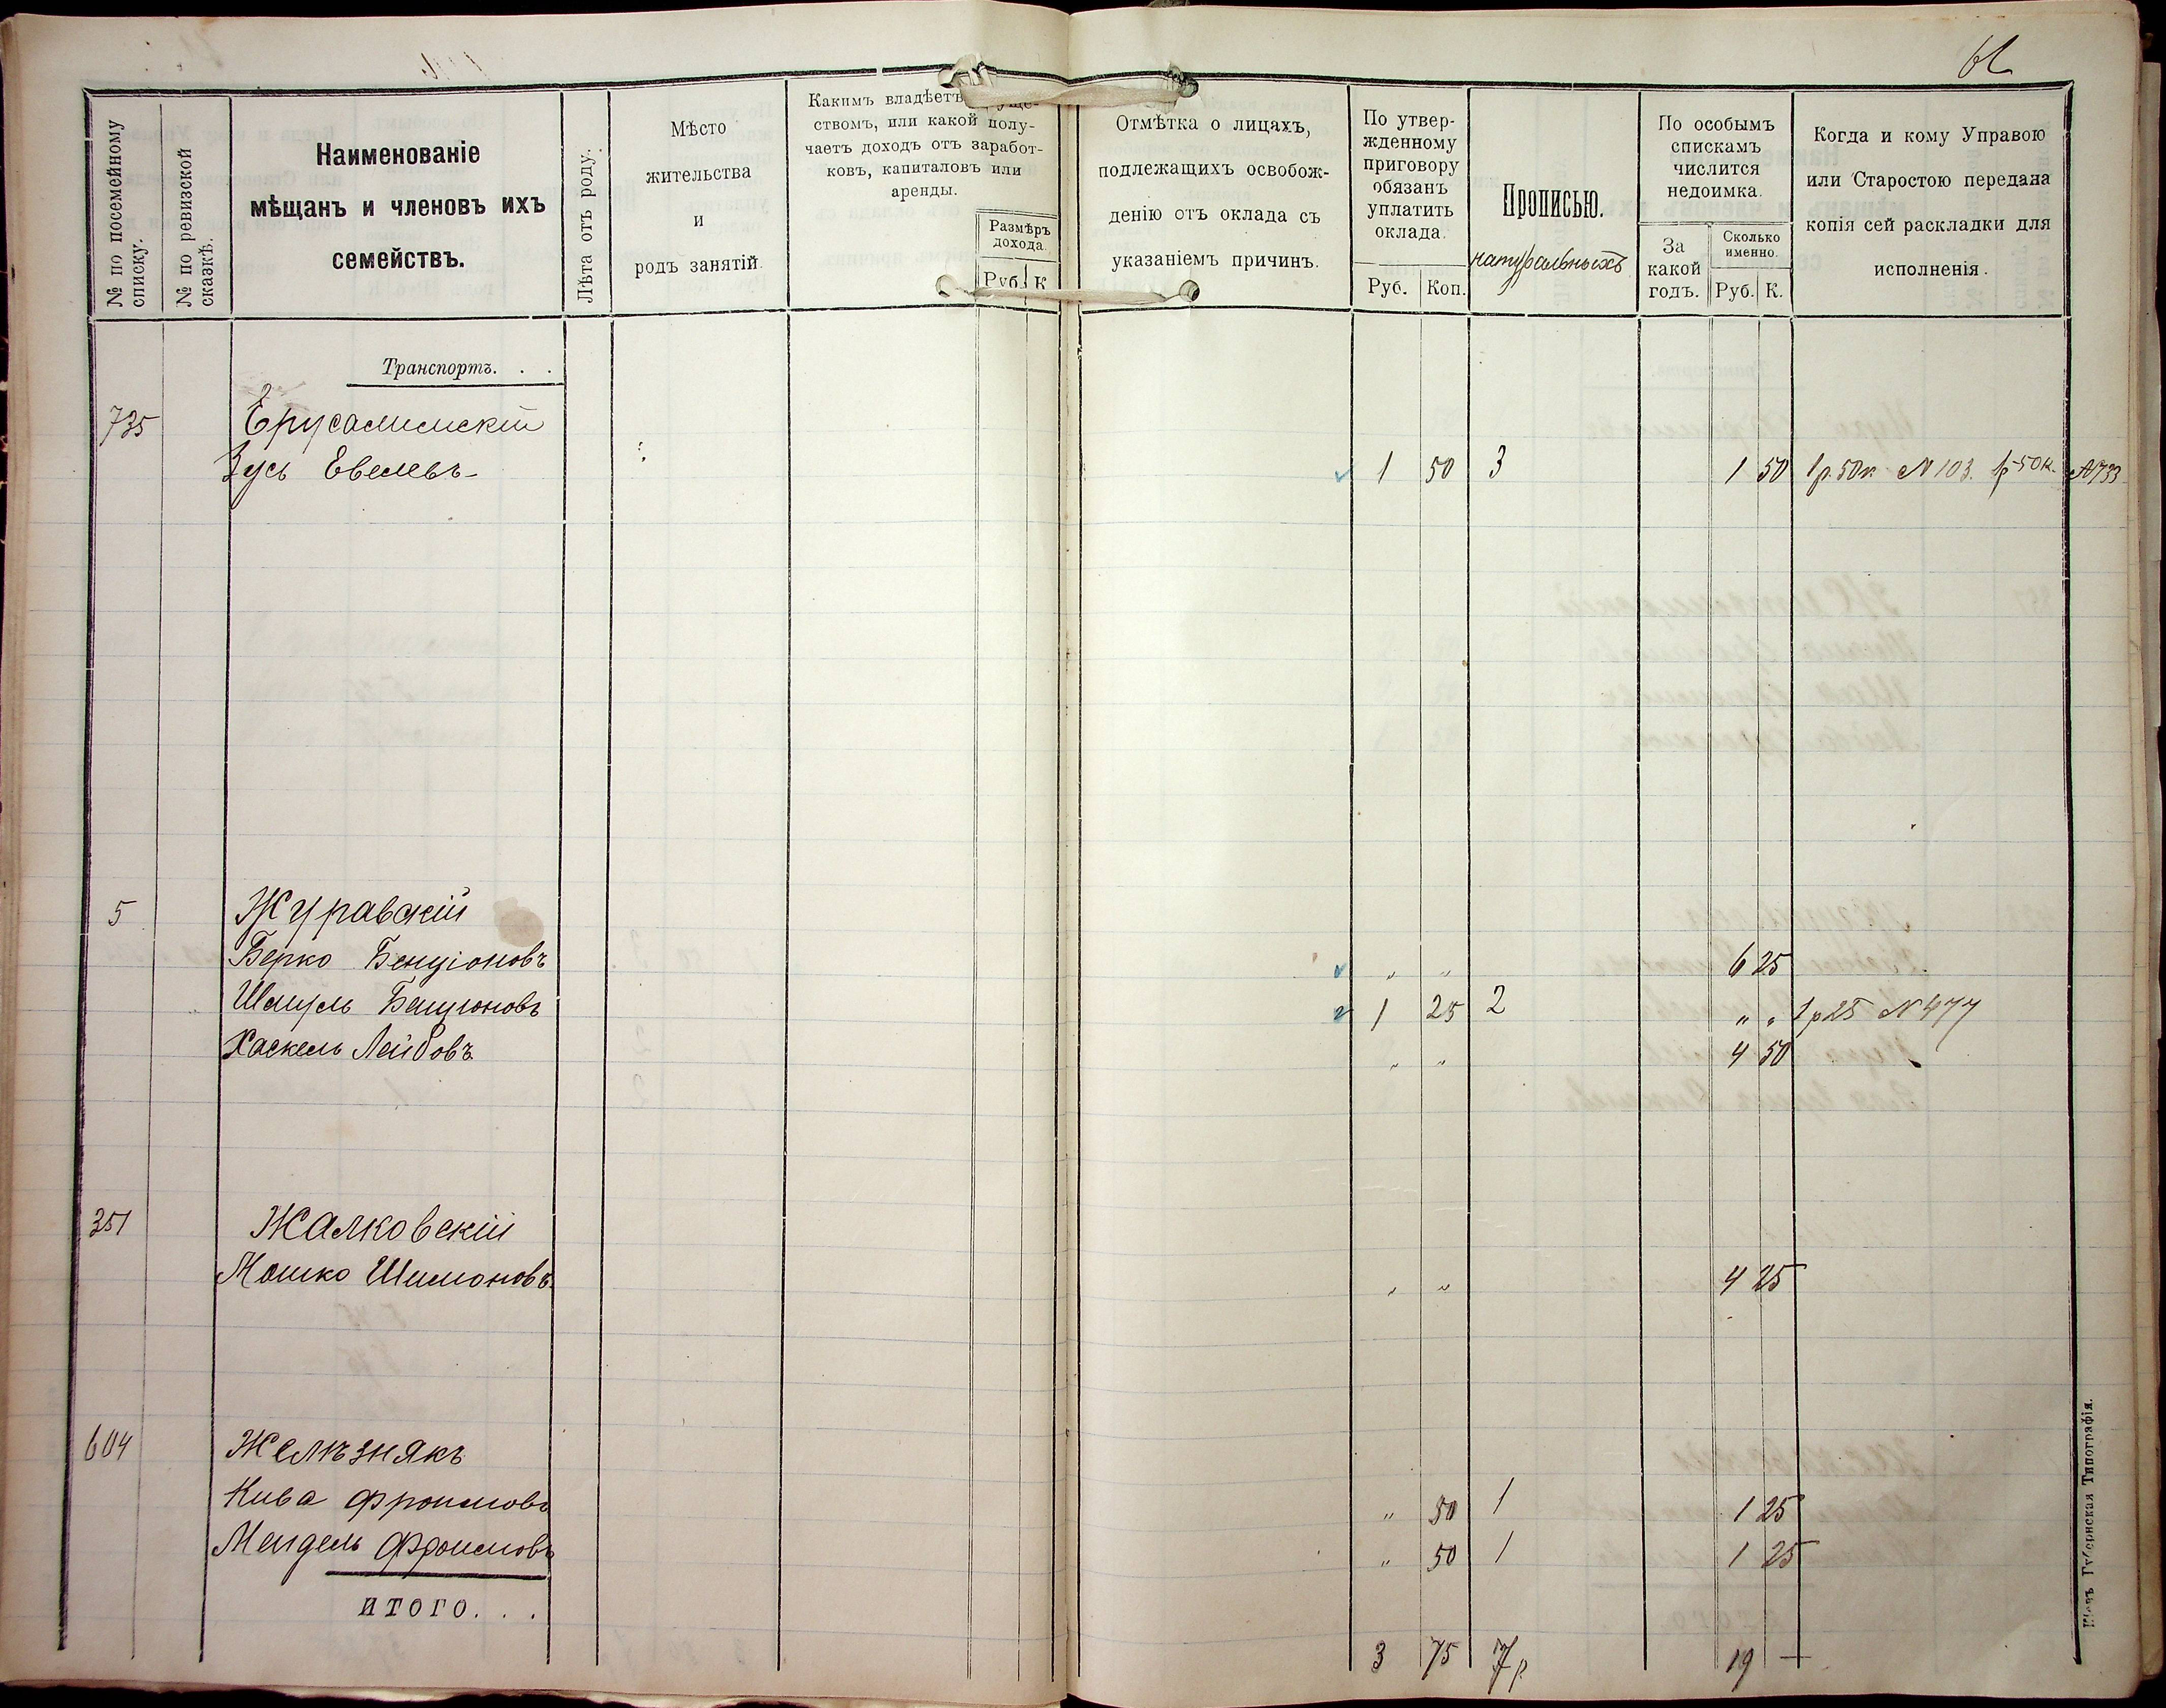 № по посемейному списку.
№ по ревизской сказкѣ.
Наименованіе
мѣщанъ и членовъ ихъ
семействъ.
Лѣта отъ роду.
Мѣсто
жительства
и
родъ занятій.
Какимъ владѣетъ
ствомъ, или какой полу-
чаетъ доходъ отъ заработ-
ковъ, капиталовъ или
аренды.
Размѣръ
дохода.
Руб. К
Отмѣтка о лицахъ,
подлежащихъ освобож-
денію отъ оклада съ
указаніемъ причинъ.
По утвер-
жденному
приговору
обязанъ
уплатить
оклада.
Руб. Коп.
Прописью.
натуральныхъ
По особымъ
спискамъ
числится
недоимка.
За
какой
годъ.
Сколько
именно.
Руб. К.
Когда и кому Управою
или Старостою передана
копія сей раскладки для
исполненія.
Транспортъ. . .
735 Ерусалимскій
Зусь Евелевъ 1 50 3 1 50 1р.50к №103. 1р 50к. №733
5 Журавскій
Берко Бенціоновъ „ „ 6 25
Шмуль Бенціоновъ 1 25 2 „ „ 1р25 №477
Хаскель Лейбовъ „ „ 4 50
351 Жалковскій
Мошко Шимоновъ „ „ 4 25
604 Желѣзнякъ
Кива Фроимовъ „ 50 1 1 25
Мендель Фроимовъ „ 50 1 1 25
ИТОГО. . .
3 75 7р 19 —
Кіевъ Губернская Типографія.